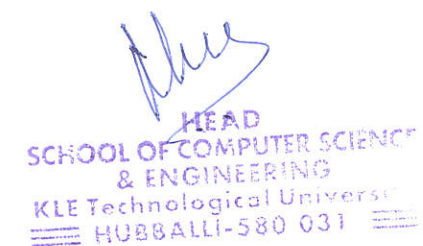 HEAD
SCHOOL OF COMPUTER SCIENCE
& ENGINEERING
KLE Technological
HUBBALLI-580 031